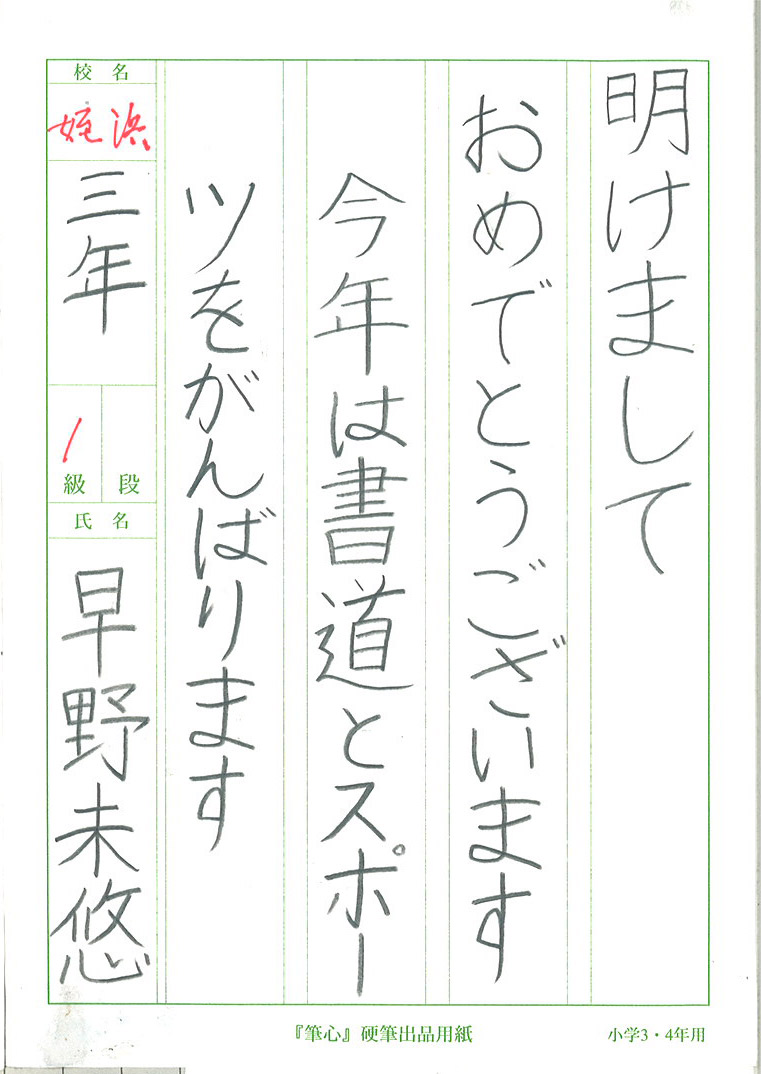 明けまして
おめでとうございます
今年は書道とスポー
ツをがんばります
校名
姪浜
三年
1
級 段
氏名
早野未悠
『筆心』硬筆出品用紙
小学3・4年用